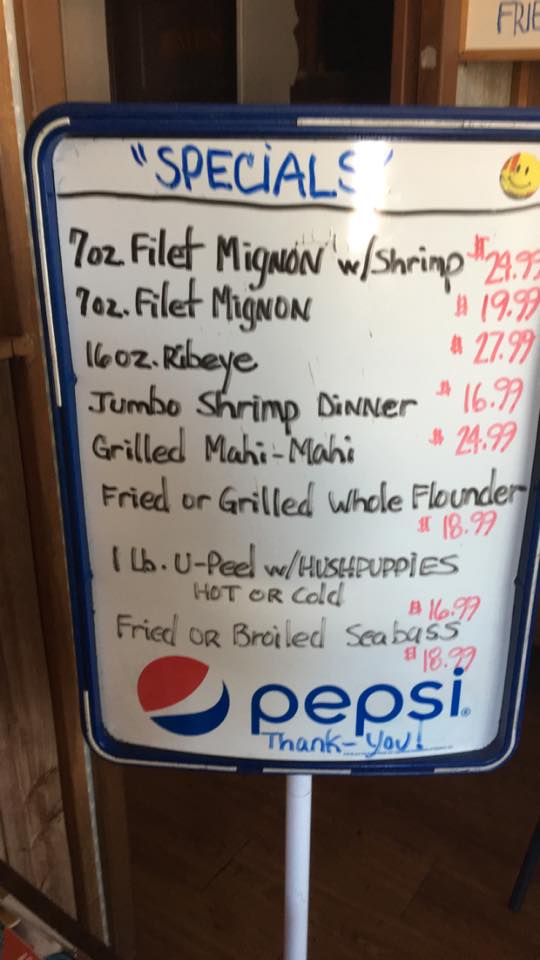 FRIE
"SPECIALS"
7oz Filet Mignon w/Shrimp $29.99
7oz. Filet Mignon $19.99
16oz. Ribeye $27.99
Jumbo Shrimp Dinner $16.99
Grilled Mahi-Mahi $24.99
Fried or Grilled Whole Flounder
$18.99
1 Lb. U-Peel w/HUSHPUPPIES
HOT OR Cold
$16.99
Fried OR Broiled Seabass
$18.99
pepsi®
Thank-You!